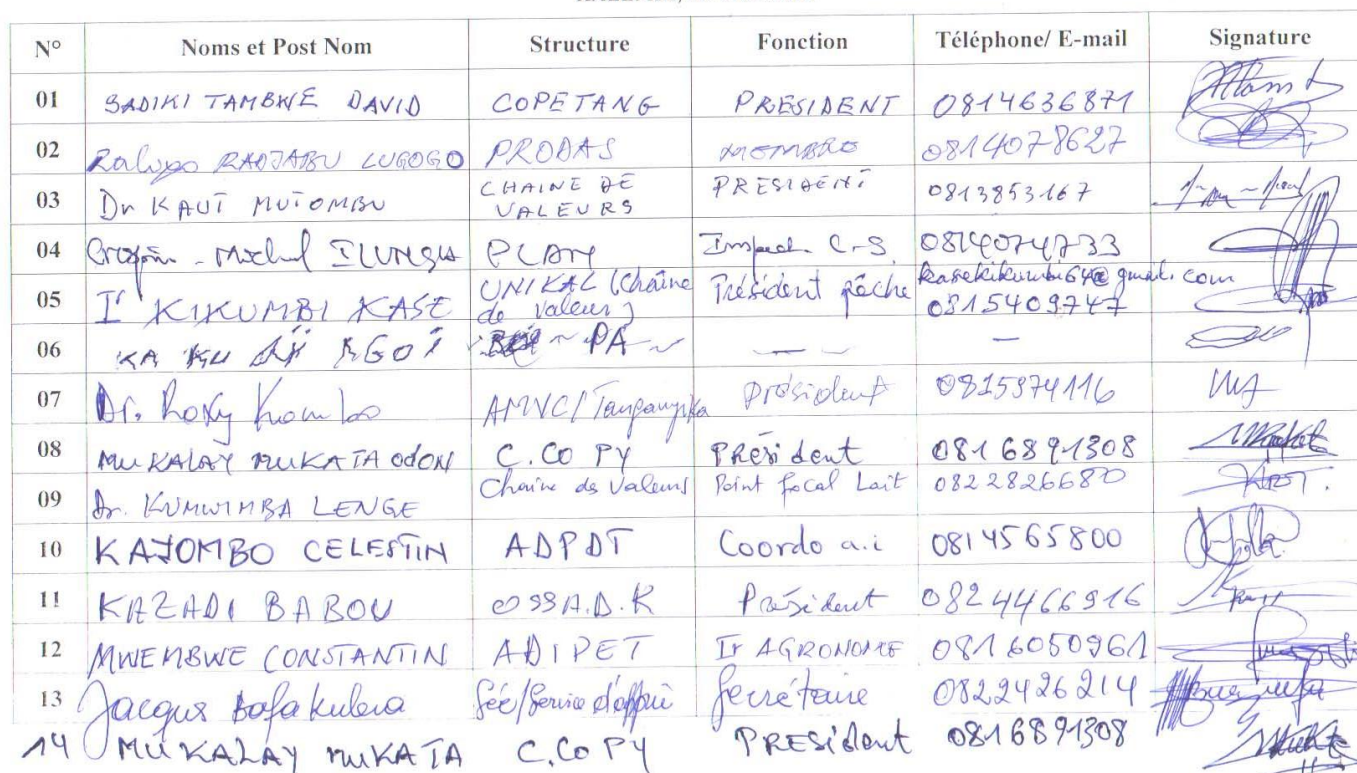 N° Noms et Post Nom Structure Fonction Téléphone/ E-mail Signature
01 SADIKI TAMBWE DAVID COPETANG PRESIDENT 0814636871
02 RADJABU LUGOGO PRODAS MEMBRE 0814078627
03 Dr KAUT MUTOMBU CHAINE DE VALEURS PRESIDENT 0813853167
04 ILUNGA Inspect. C-S. 0814074733
05 Ir KIKUMBI KASE UNIKAL (Chaîne de valeur) Président pêche kasekikumbi64@gmail.com 0815409747
06 PA — —
07 Dr. Roxy AMVC/Tanganyika Président 0815974116
08 MUKALAY MUKATA ODON C.COPY Président 0816891308
09 Dr. KUMWIMBA LENGE Chaine de Valeurs Point focal Lait 0822826680
10 KAJOMBO CELESTIN ADPDT Coordo a.i 0814565800
11 KAZADI BABOU OSSA.D.K Président 0824466916
12 MWEMBWE CONSTANTIN ADIPET Ir AGRONOME 0816050961
13 Jacques Sée/Service d'appui Secrétaire 0822426214
14 MUKALAY MUKATA C.COPY PRESIDent 0816891308